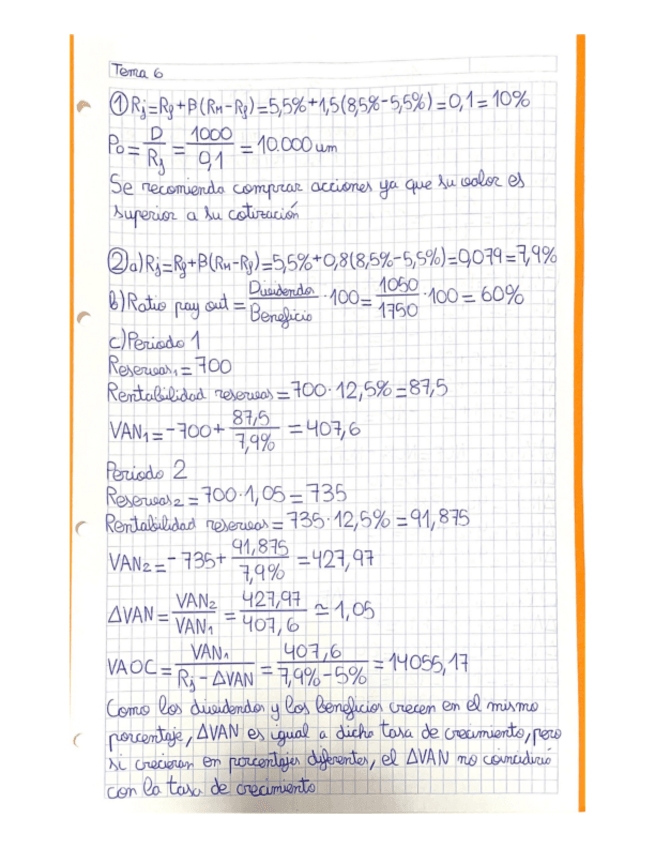 Tema 6
① Rj=Rf+β(RM-Rf)=5,5%+1,5(8,5%-5,5%)=0,1=10%
P0 = D/Rj = 1000/0,1 = 10.000 um
Se recomienda comprar acciones ya que su valor es
superior a su cotización
② a) Rj=Rf+β(RM-Rf)=5,5%+0,8(8,5%-5,5%)=0,079=7,9%
b) Ratio pay out = Dividendos/Beneficio · 100 = 1050/1750 · 100 = 60%
c) Periodo 1
Reservas1 = 700
Rentabilidad reservas = 700 · 12,5% = 87,5
VAN1 = -700 + 87,5/7,9% = 407,6
Periodo 2
Reservas2 = 700 · 1,05 = 735
Rentabilidad reservas = 735 · 12,5% = 91,875
VAN2 = -735 + 91,875/7,9% = 427,97
ΔVAN = VAN2/VAN1 = 427,97/407,6 ≃ 1,05
VAOC = VAN1/Rj - ΔVAN = 407,6/7,9% - 5% = 14055,17
Como los dividendos y los beneficios crecen en el mismo
porcentaje, ΔVAN es igual a dicha tasa de crecimiento, pero
si crecieran en porcentajes diferentes, el ΔVAN no coincidiría
con la tasa de crecimiento